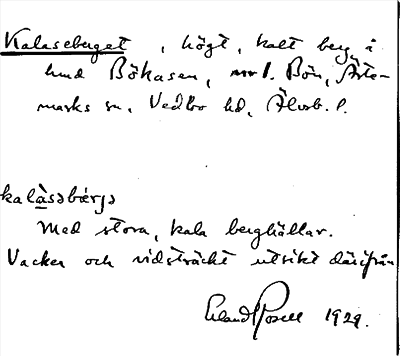 Kalaseberget, högt, kalt berg i
hmd Bökasen, nr 1. Bön, Årte-
marks sn, Vedbo hd, Älvsb. l.
kalàsəbærjə
Med stora, kala berghällar.
Vacker och vidsträckt utsikt därifrån
Erland Rosell 1929.